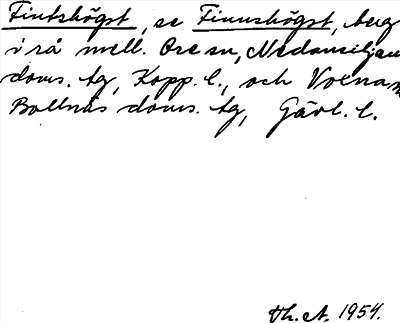 Fintshögst, se Finnshögst, berg
i rå mell. Ore sn, Nedansiljans
doms. tg, Kopp. l., och Voxna sn
Bollnäs doms. tg, Gävl. l.
1954.